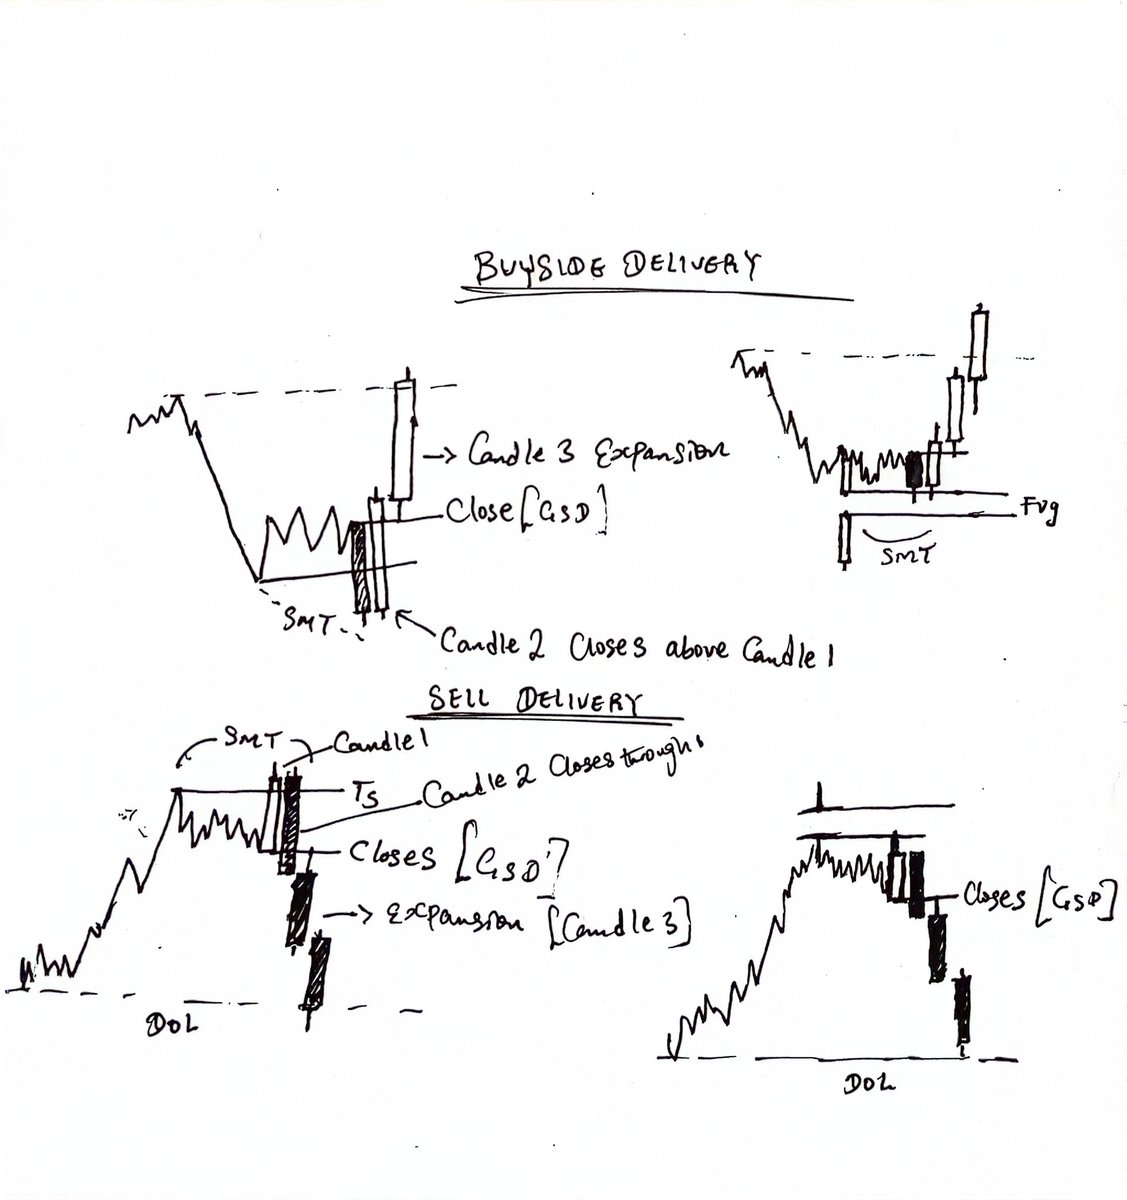 BUYSIDE DELIVERY
→ Candle 3 Expansion
Close [GSD]
SMT
Candle 2 Closes above Candle 1
Fvg
SMT
SELL DELIVERY
SMT
Candle 1
TS
Candle 2 Closes through
Closes [GSD]
→ Expansion [Candle 3]
DOL
Closes [GSD]
DOL